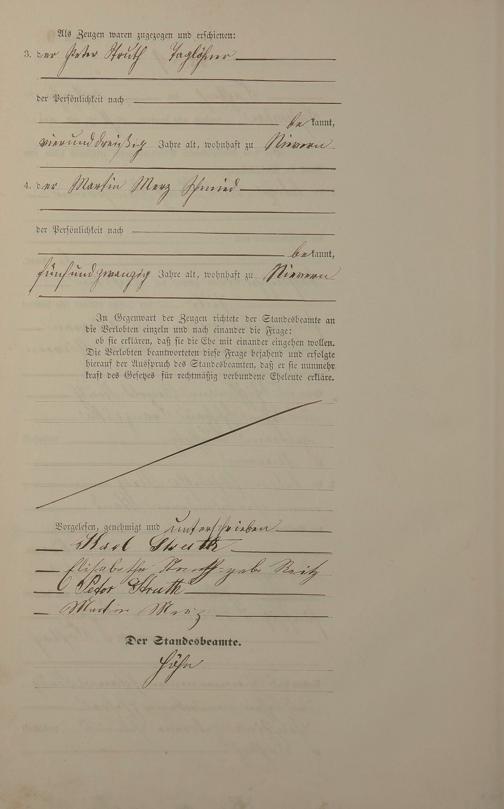 Als Zeugen waren zugezogen und erschienen:
3. der Peter Struth Taglöhner
der Persönlichkeit nach
be kannt,
vierunddreißig Jahre alt, wohnhaft zu Nievern
4. der Martin Merz Schmied
der Persönlichkeit nach
be kannt,
fünfundzwanzig Jahre alt, wohnhaft zu Nievern
In Gegenwart der Zeugen richtete der Standesbeamte an
die Verlobten einzeln und nach einander die Frage:
ob sie erklären, daß sie die Ehe mit einander eingehen wollen.
Die Verlobten beantworteten diese Frage bejahend und erfolgte
hierauf der Ausspruch des Standesbeamten, daß er sie nunmehr
kraft des Gesetzes für rechtmäßig verbundene Eheleute erkläre.
Vorgelesen, genehmigt und unterschrieben
Karl Struth
Elisabetha Struth geb Reitz
Peter Struth
Martin Merz
Der Standesbeamte.
Höhn